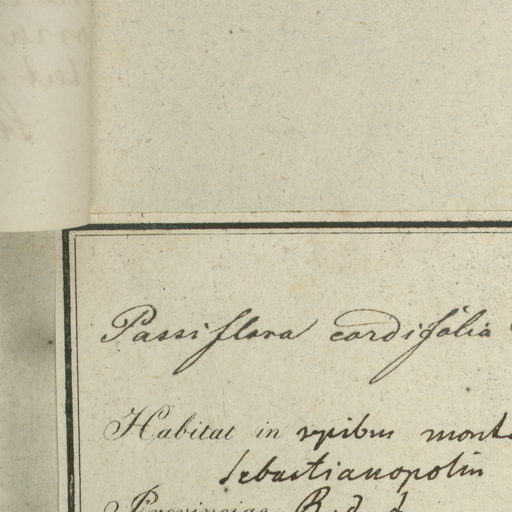 Passiflora cordifolia
Habitat in sepibus
Sebastianopolin
Provinciae R. d.